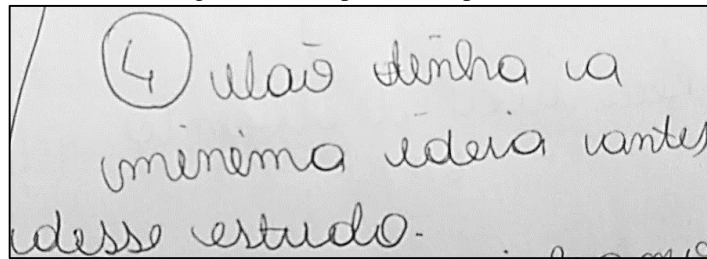 4 Não tinha a
mínima ideia antes
desse estudo.